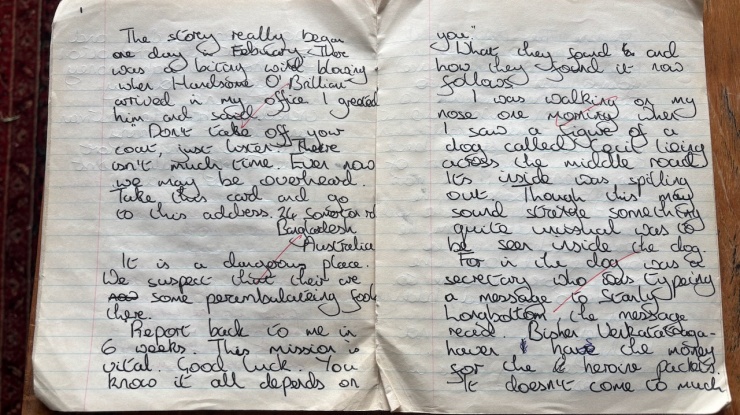 The story really began
one day in February. There
was a biting wind blowing
when Handsome O'Brillian
arrived in my office I greeted
him and said
"Don't take off your
coat, just listen. There
isn't much time. Even now
we may be overheard.
Take this card and go
to this address. 24
Bangladesh
Australia
It is a dangerous place.
We suspect that their are
some perambulateing fools
there.
Report back to me in
6 weeks. This mission is
vital. Good luck. You
know it all depends on
you."
What they found and
how they found it now
follows
I was walking on my
nose one morning when
I saw a figure of a
dog called Cecil lieing
across the middle road
Its inside was spilling
out. Though this may
sound strange something
quite unusual was to
be seen inside the dog
For in the dog was a
secretary who was typeing
a message to Starly
Longbottom, the message
read. Bisher
haver have the money
for the heroine packets
It doesn't come to much